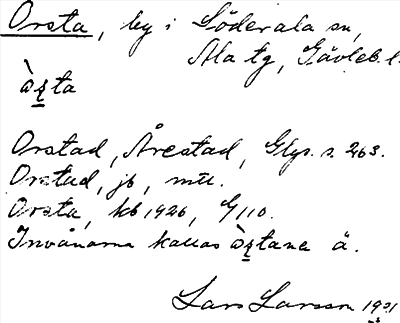 Orsta, by i Söderala sn,
Ala tg, Gävleb. l.
Orstad, Årestad, Glys. s. 263.
Orstad, jb, mtl.
Orsta, kb 1926, G110.
Invånarna kallas å.
Lars Larsson